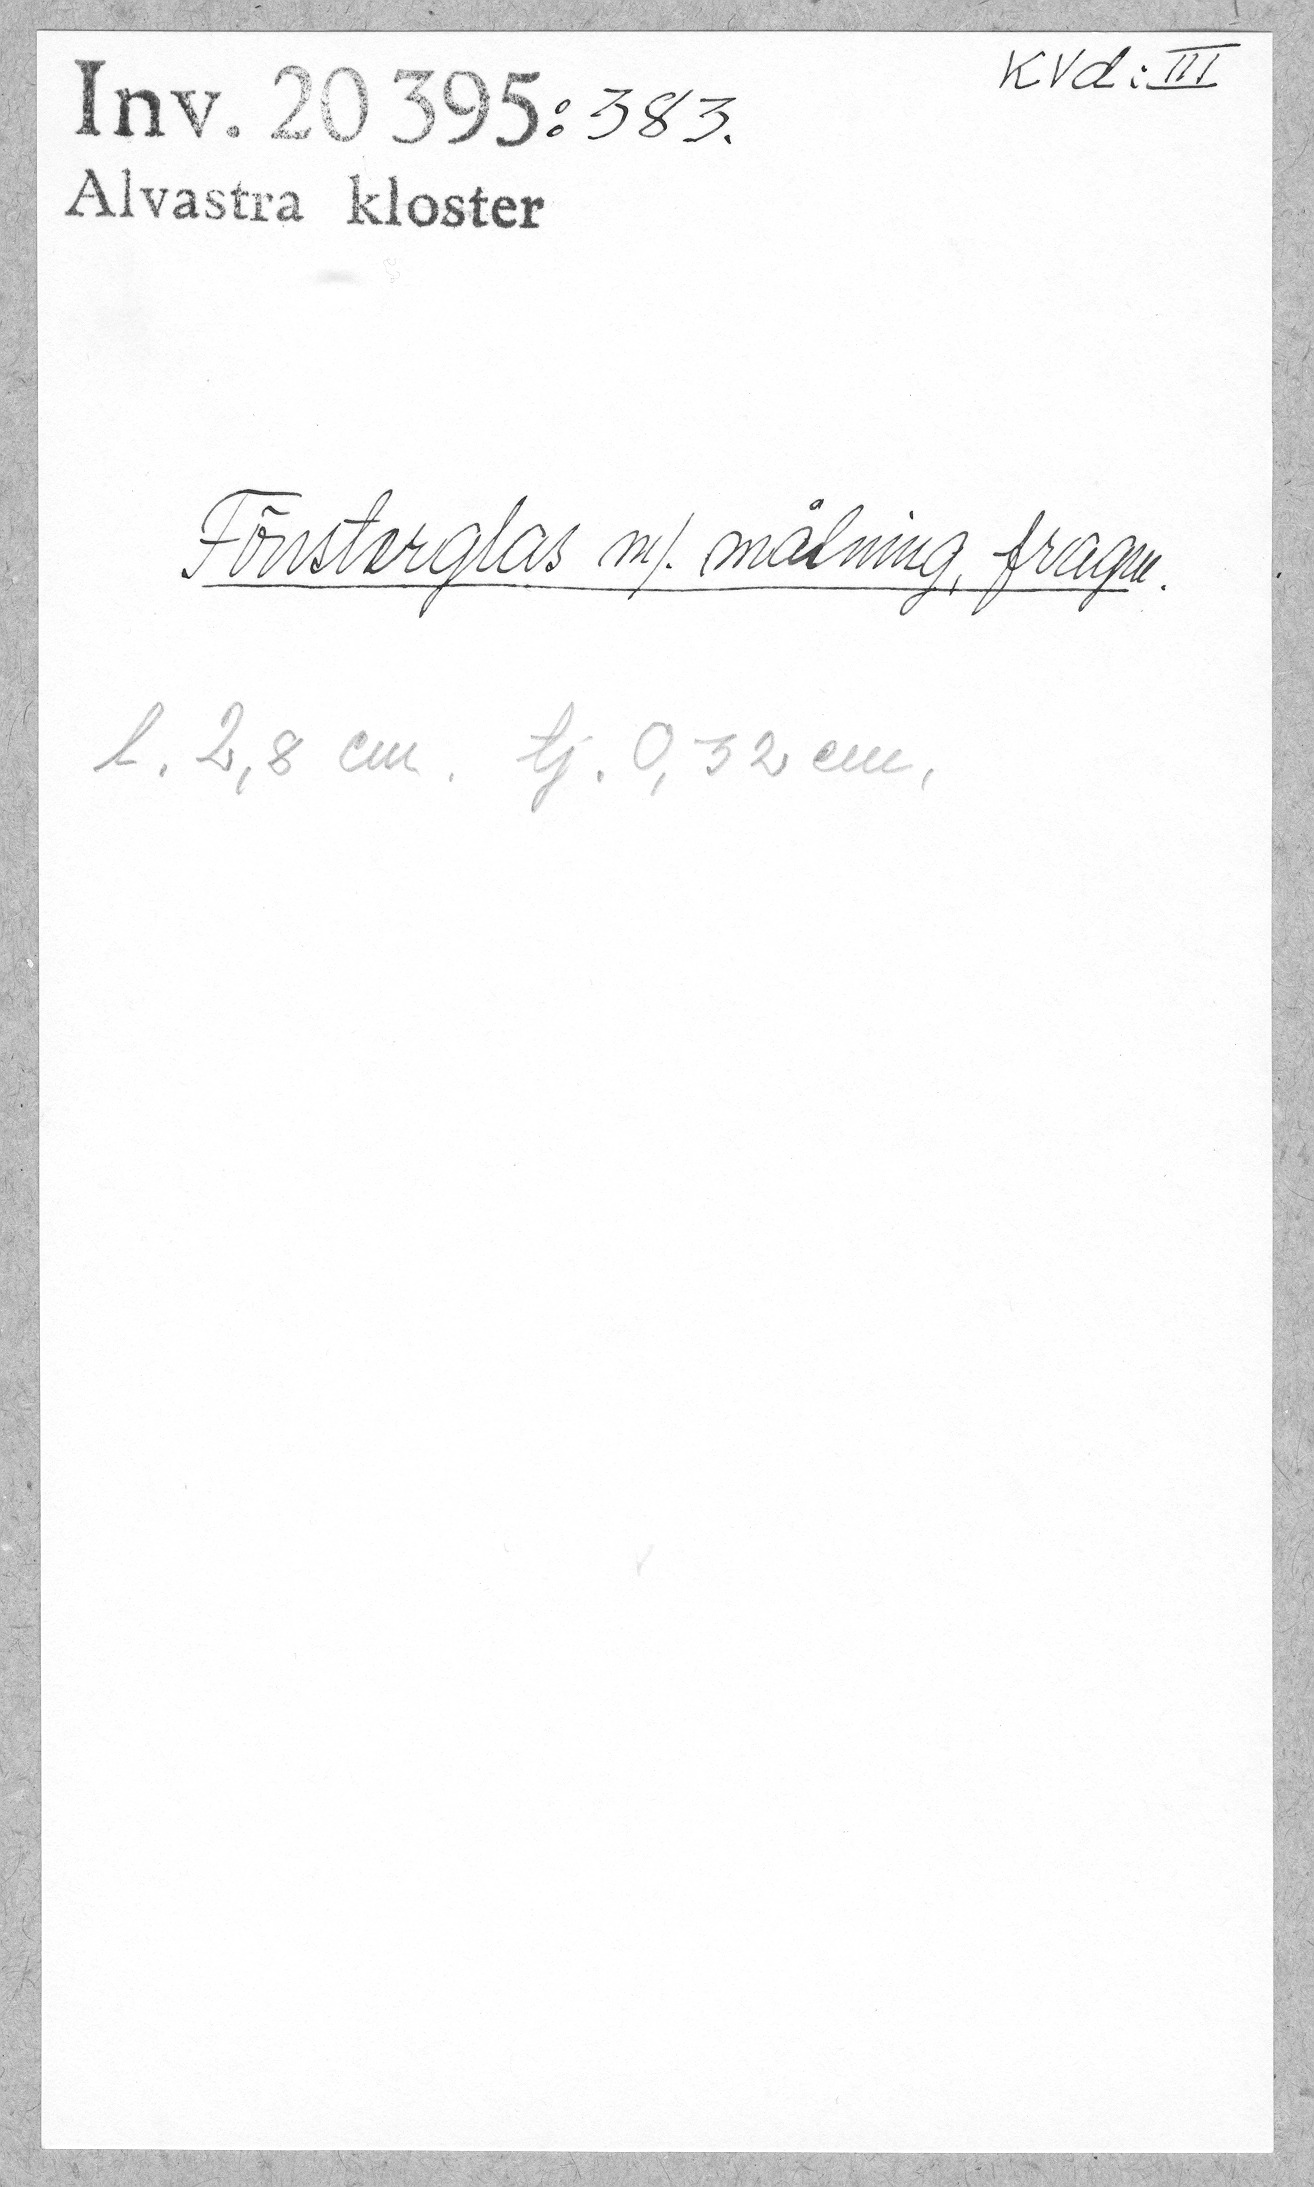 Inv. 20 395:383.
KVd:III
Alvastra kloster
Fönsterglas m/. målning, fragm.
l. 2,8 cm. tj. 0,32 cm.